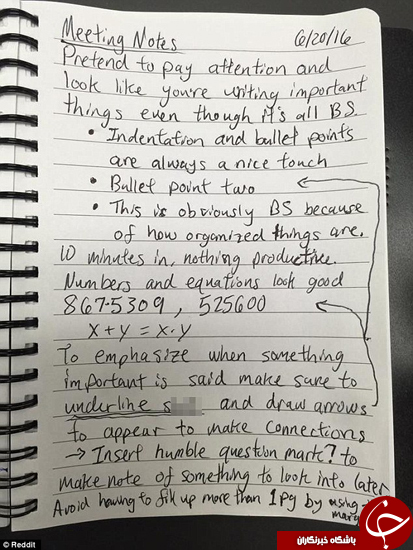 Meeting Notes 6/20/16
Pretend to pay attention and
look like you're writing important
things even though it's all BS.
• Indentation and bullet points
are always a nice touch
• Bullet point two
• This is obviously BS because
of how organized things are.
10 minutes in, nothing productive.
Numbers and equations look good
867-5309, 525600
x + y = x · y
To emphasize when something
important is said make sure to
underline s and draw arrows
to appear to make connections
→ Insert humble question mark? to
make note of something to look into later
Avoid having to fill up more than 1 pg by using
باشگاه خبرنگاران
© Reddit